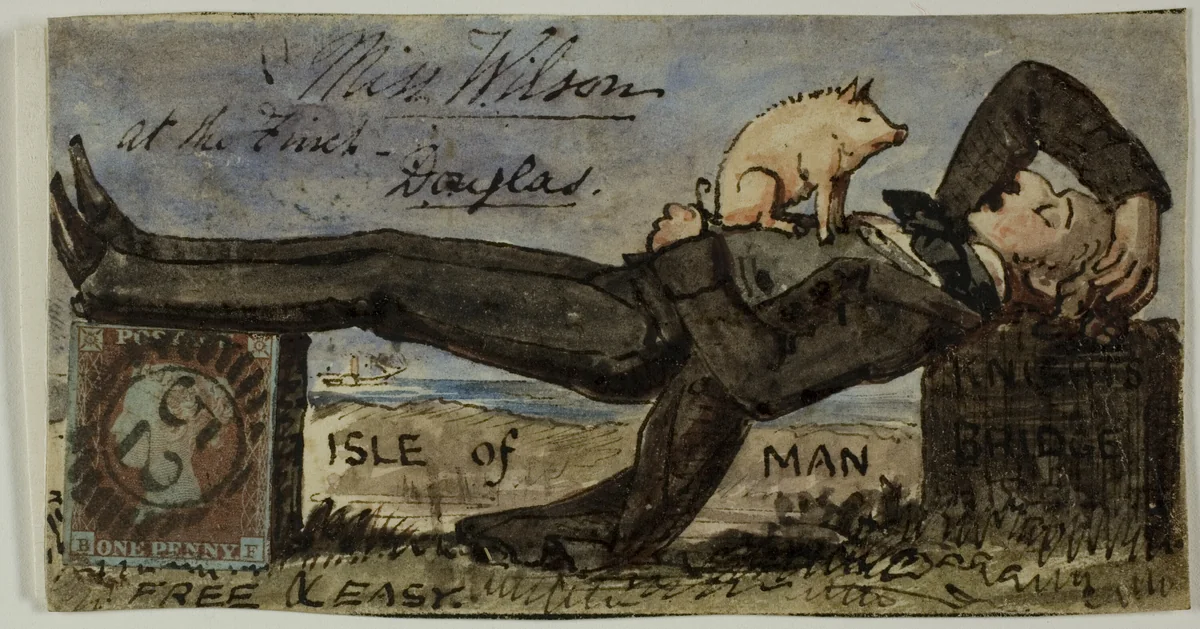 Miss Wilson
at the Finch -
Douglas.
POSTAGE
ISLE of MAN
KNIGHTS
BRIDGE
B ONE PENNY F
FREE & EASY.